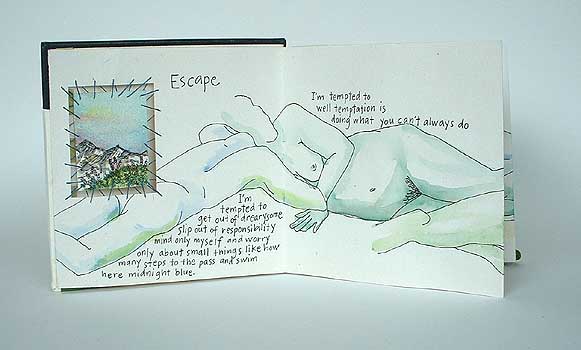 Escape
I'm tempted to
well temptation is
doing what you can't always do
I'm
tempted to
get out of drearysome
slip out of responsibility
mind only myself and worry
only about small things like how
many steps to the pass and swim
here midnight blue.